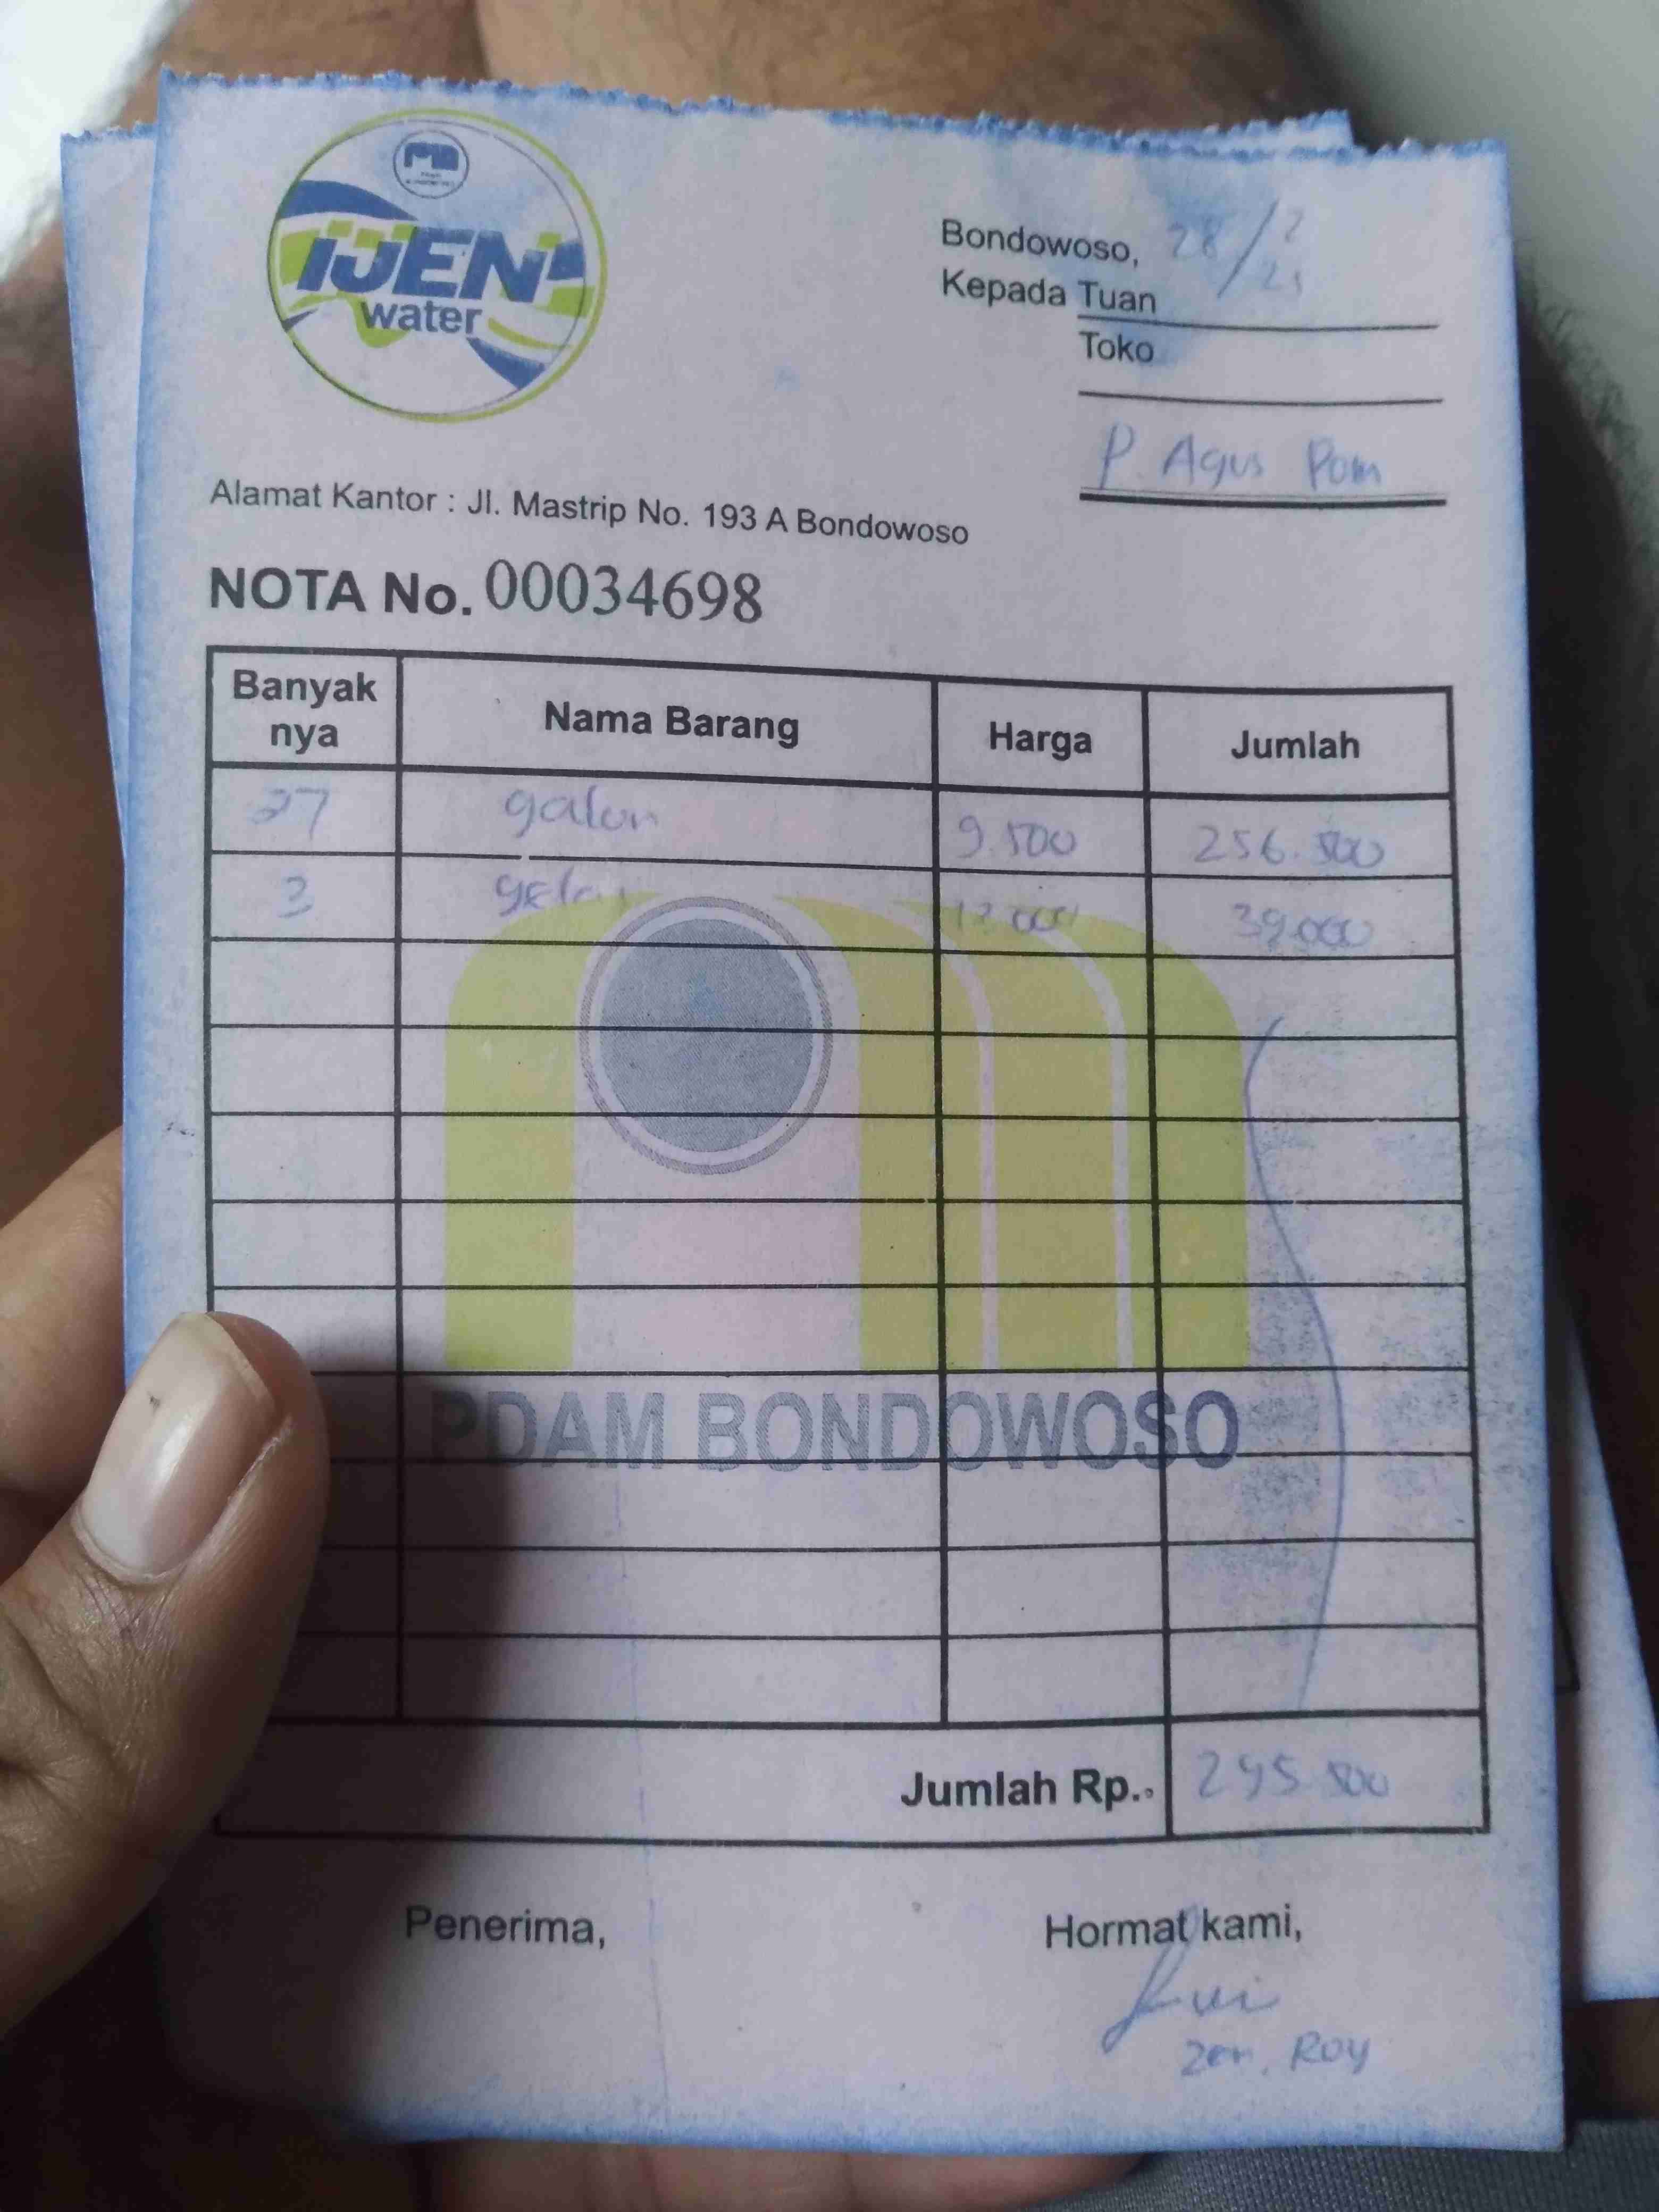 IJEN
water
Bondowoso, 28/2
Kepada Tuan
Toko
P. Agus Pom
Alamat Kantor : Jl. Mastrip No. 193 A Bondowoso
NOTA No. 00034698
Banyak nya Nama Barang Harga Jumlah
27 galon 9.500 256.500
3 13.000 39.000
PDAM BONDOWOSO
Jumlah Rp.. 295.500
Penerima, Hormat kami,
Zen, Roy